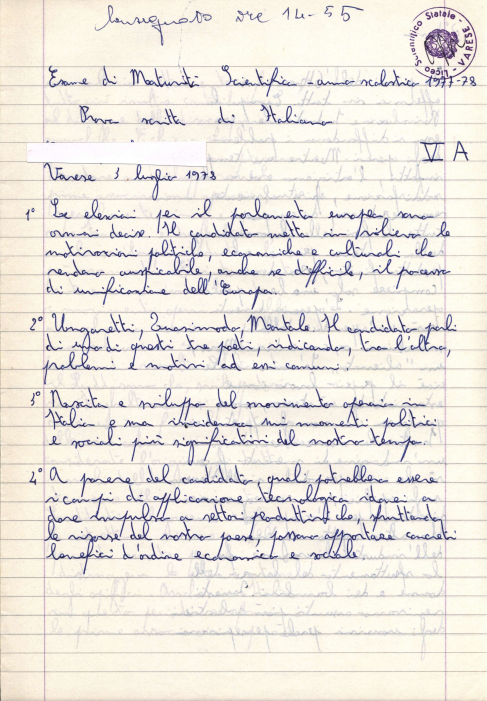 Consegnato ore 14-55
Liceo Scientifico Statale - VARESE
Esame di Maturità Scientifica - anno scolastico 1977-78
Prova scritta di Italiano
V A
Varese 3 luglio 1978
1° Le elezioni per il parlamento europeo sono
ormai decise. Il candidato metta in rilievo le
motivazioni politiche, economiche e culturali che
rendono auspicabile, anche se difficile, il processo
di unificazione dell'Europa.
2° Ungaretti, Quasimodo, Montale. Il candidato parli
di uno di questi tre poeti, indicando, tra l'altro,
problemi e motivi ad essi comuni.
3° Nascita e sviluppo del movimento operaio in
Italia e sua incidenza nei momenti politici
e sociali più significativi del nostro tempo.
4° A parere del candidato, quali potrebbero essere
i campi di applicazione tecnologica idonei a
dare impulso a settori produttivi che, sfruttando
le risorse del nostro paese, possano apportare concreti
benefici d'ordine economico e sociale